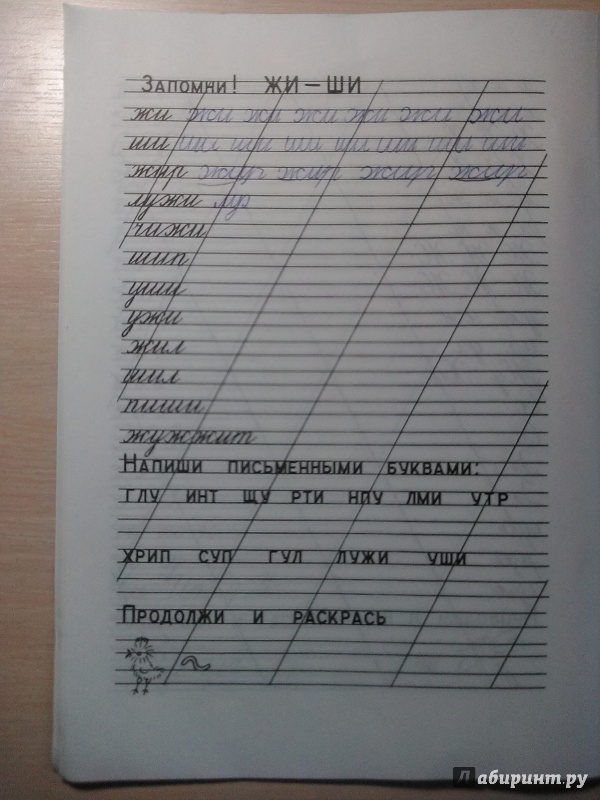 Запомни! ЖИ – ШИ
жи жи жи жи жи жи жи
ши ши ши ши ши ши ши ши
жир жир жир жир жир
лужи луж
чижи
шип
уши
ужи
жил
шил
пиши
жужжит
Напиши письменными буквами:
ГЛУ ИНТ ЩУ РТИ НПУ ЛМИ УТР
ХРИП СУП ГУЛ ЛУЖИ УШИ
Продолжи и раскрась
Л абиринт.ру